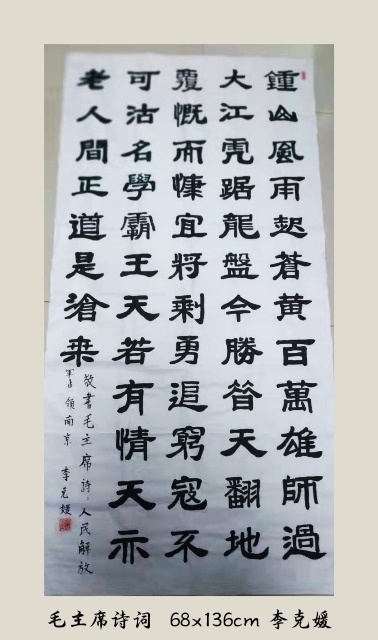 鍾山風雨起蒼黃百萬雄師過
大江虎踞龍盤今勝昔天翻地
覆慨而慷宜將剩勇追窮寇不
可沽名學霸王天若有情天亦
老人間正道是滄桒
敬書毛主席詩：人民解放
军占領南京 李克媛
毛主席诗词 68x136cm 李克媛